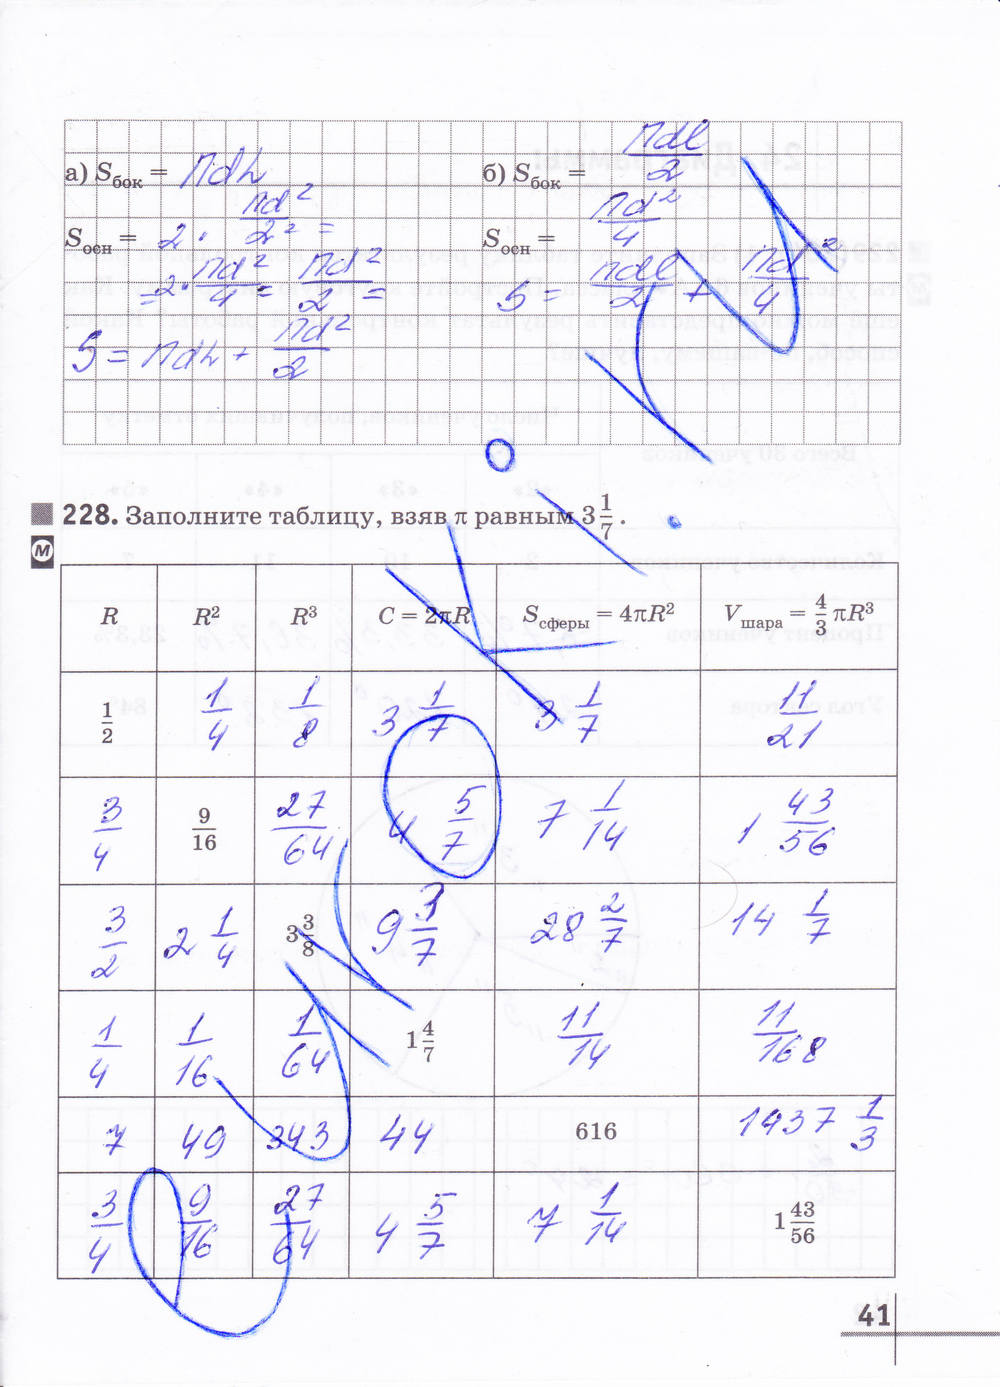 а) Sбок = πdh
Sосн = 2 · πd²/2² =
= 2 · πd²/4 = πd²/2 =
S = πdh + πd²/2
б) Sбок = πdl/2
Sосн = πd²/4
S = πdl/2 + πd²/4
228. Заполните таблицу, взяв π равным 3 1/7.
М
R R² R³ C = 2πR Sсферы = 4πR² Vшара = 4/3 πR³
1/2 1/4 1/8 3 1/7 3 1/7 11/21
3/4 9/16 27/64 4 5/7 7 1/14 1 43/56
3/2 2 1/4 3 3/8 9 3/7 28 2/7 14 1/7
1/4 1/16 1/64 1 4/7 11/14 11/168
7 49 343 44 616 1437 1/3
3/4 9/16 27/64 4 5/7 7 1/14 1 43/56
41